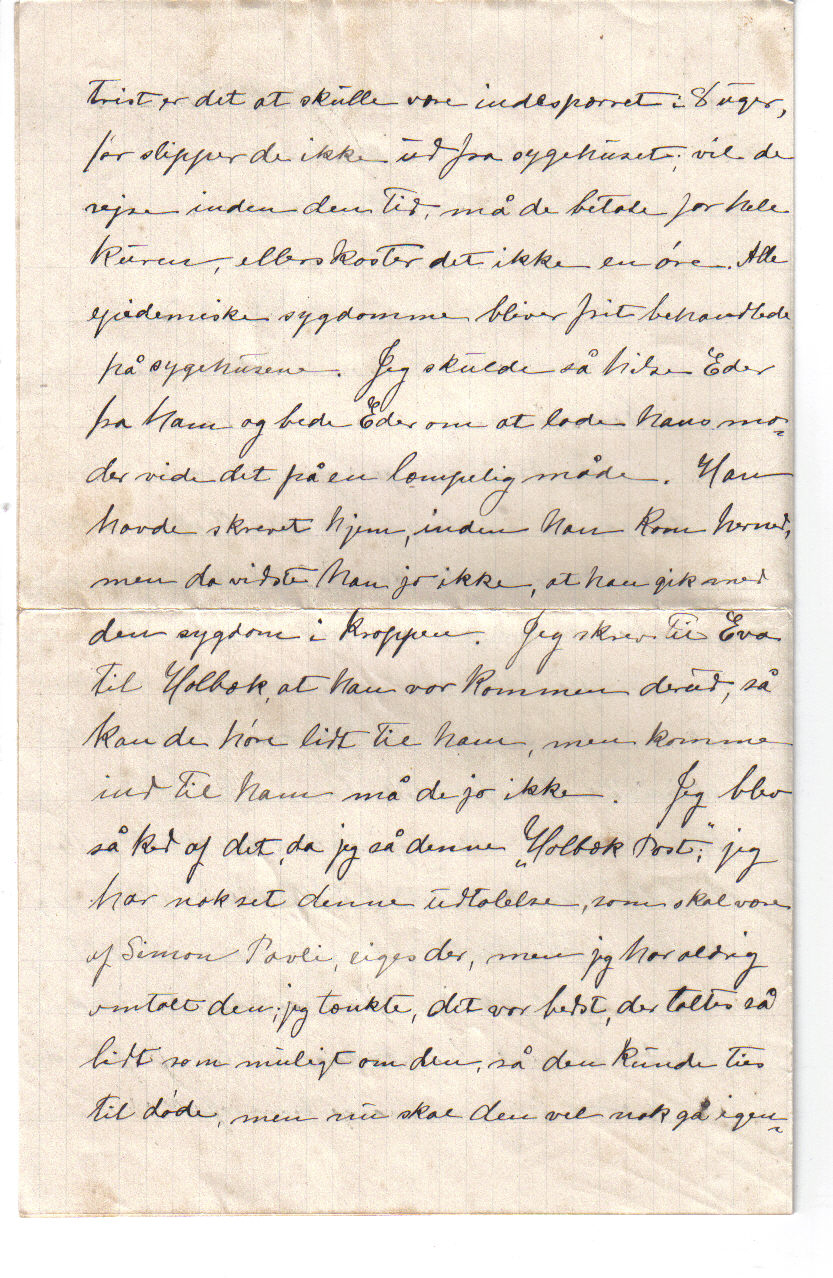 trist er det at skulle være indespærret i 8 uger,
før slipper de ikke ud fra sygehuset; vil de
rejse inden den tid, må de betale for hele
kuren, ellers koster det ikke en øre. Alle
epidemiske sygdomme bliver frit behandlede
på sygehusene. Jeg skulde så hilse Eder
fra ham og bede Eder om at lade hans mo-
der vide det på en lempelig måde. Han
havde skrevet hjem, inden han kom herned,
men da vidste han jo ikke, at han gik med
den sygdom i kroppen. Jeg skrev til Eva
til Holbæk, at han var kommen derud, så
kan de høre lidt til ham, men komme
ind til ham må de jo ikke. Jeg blev
så ked af det, da jeg så denne „Holbæk Post;" jeg
har nok set denne udtalelse, som skal være
af Simon Pavli, siges der, men jeg har aldrig
omtalt den; jeg tænkte, det var bedst, der taltes så
lidt som muligt om den, så den kunde ties
til døde, men nu skal den vel nok gå igen-